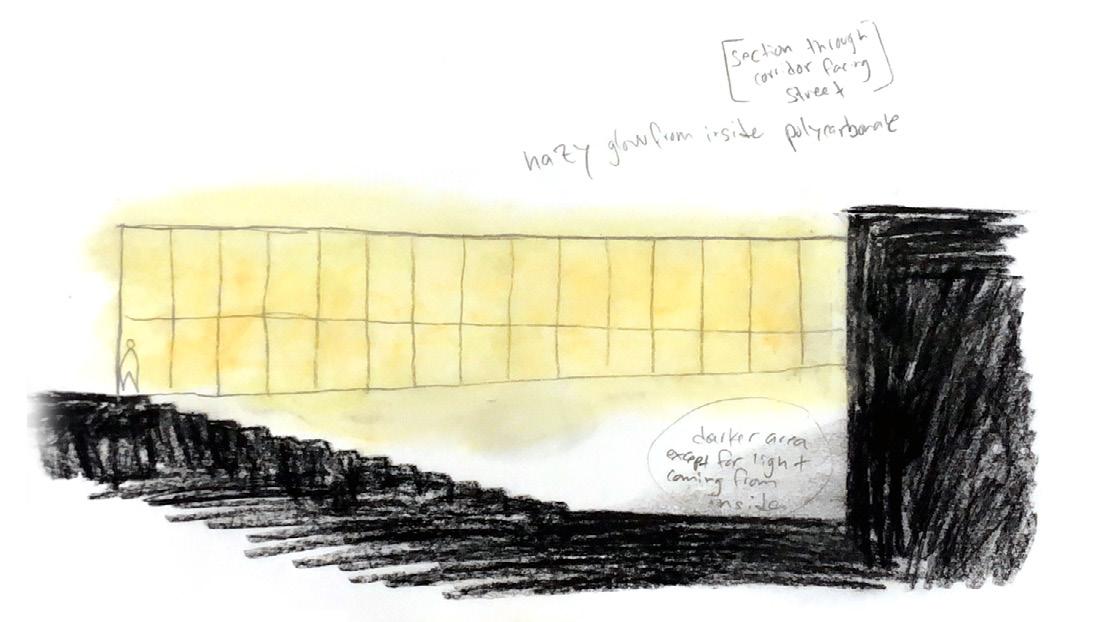 [section through
corridor facing
street]
hazy glow from inside polycarbonate
darker area
except for light
coming from
inside